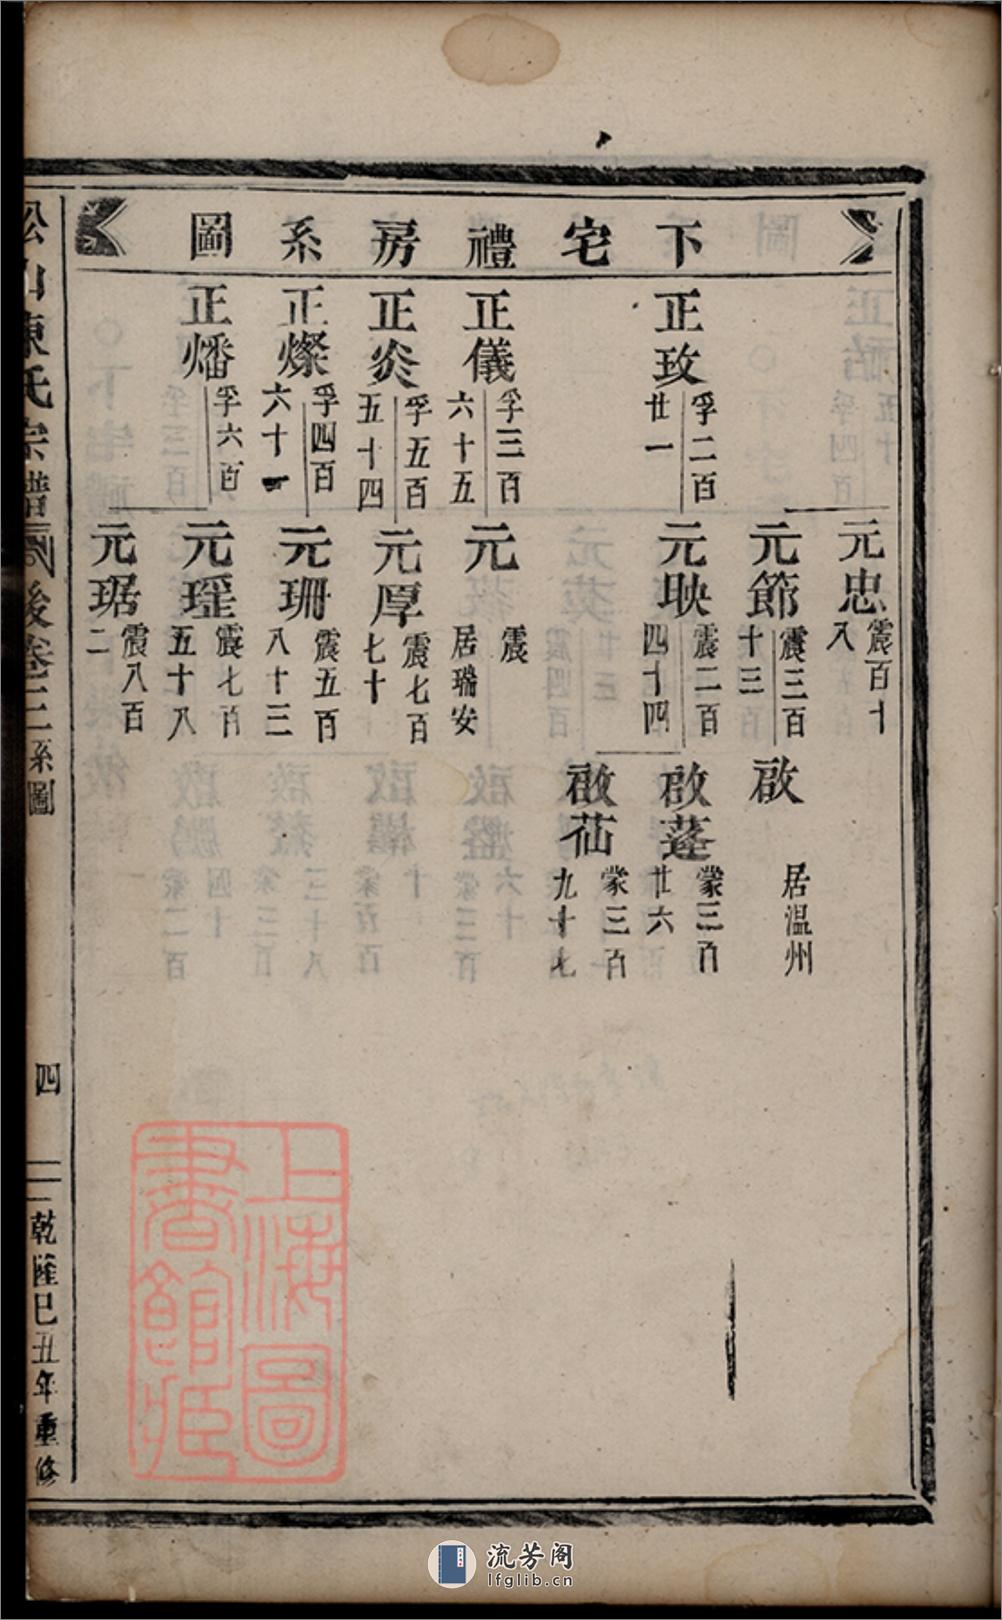 下宅禮房系圖
正玫 孚二百廿一
正儀 孚三百六十五
正炎 孚五百五十四
正燦 孚四百六十一
正燔 孚六百
元忠 震百十八
元節 震三百十三
元映 震二百四十四
元 震 居瑞安
元厚 震七百七十
元珊 震五百八十三
元瑶 震七百五十八
元琚 震八百二
啟 居温州
啟蓬 蒙三百廿六
啟茄 蒙三百九十七
松山陳氏宗譜 後卷二系圖
四
乾隆己丑年重修
上海圖書館藏
流芳阁
lfglib.cn